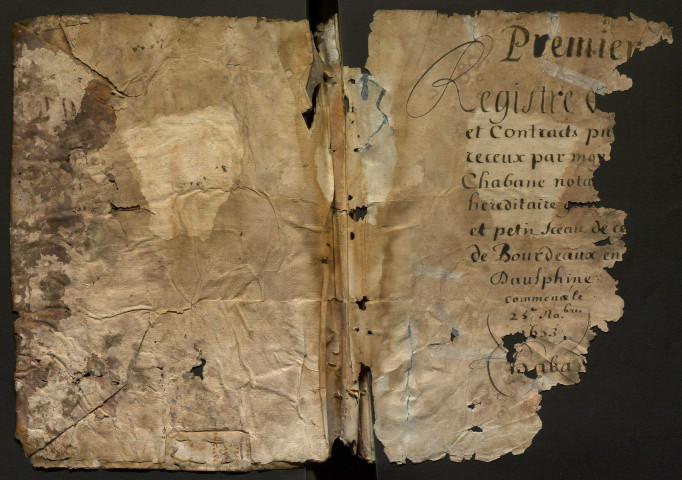 Premier
Registre
et Contracts pu
receux par mo
Chabane nota
hereditaire
et petit sceau de ce
de Bourdeaux en
Dauphine
commencé le
25e No.bre
1653
Chaba